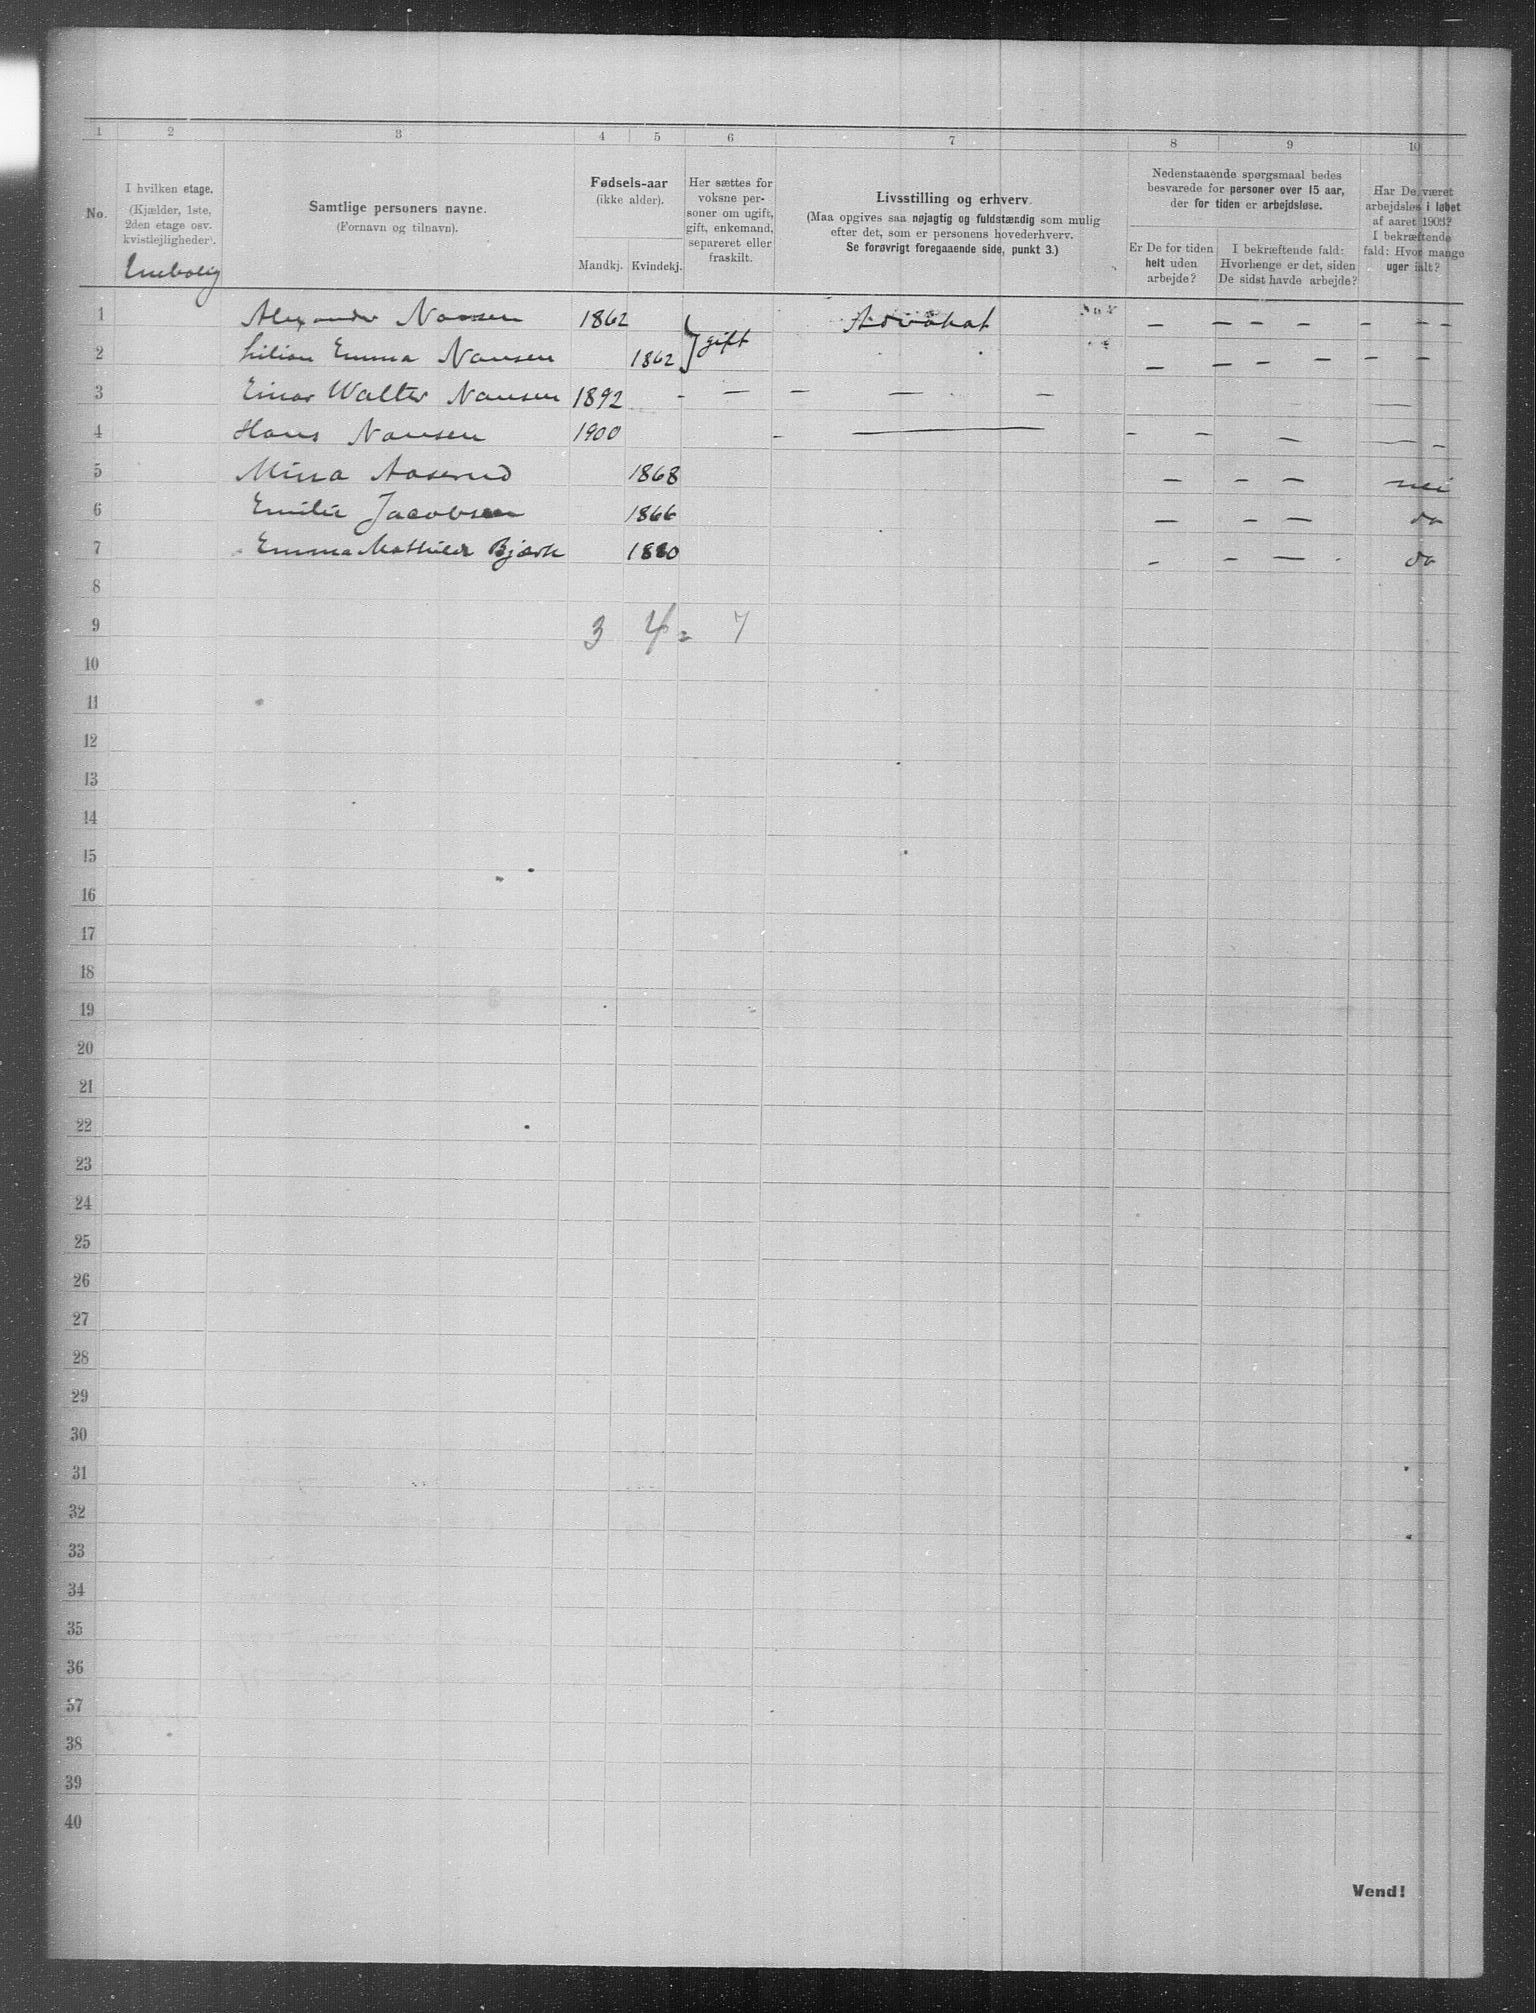 1 2 3 4 5 6 7 8 9 10
No.
I hvilken etage. (Kjælder, 1ste, 2den etage osv. kvistlejligheder).
Samtlige personers navne.
(Fornavn og tilnavn).
Fødsels-aar
(ikke alder).
Mandkj. Kvindekj.
Her sættes for voksne personer om ugift, gift, enkemand, separeret eller fraskilt.
Livsstilling og erhverv.
(Maa opgives saa nøjagtig og fuldstændig som mulig
efter det, som er personens hovederhverv.
Se forøvrigt foregaaende side, punkt 3.)
Nedenstaaende spørgsmaal bedes
besvarede for personer over 15 aar,
der for tiden er arbejdsløse.
Er De for tiden
helt uden
arbejde?
I bekræftende fald:
Hvorlænge er det, siden
De sidst havde arbejde?
Har De været
arbejdsløs i løbet
af aaret 1903?
I bekræftende
fald: Hvor mange
uger ialt?
Enebolig
1 Alexander Nansen 1862 } gift Advokat — — — — — — —
2 Lilian Emma Nansen 1862 — — — — — —
3 Einar Walter Nansen 1892 - — — — — —
4 Hans Nansen 1900 - — - - — — -
5 Mina Aaserud 1868 — — — nei
6 Emilie Jacobsen 1866 — — — do
7 Emma Mathilde Bjørk 1880 - — — do
8
9 3 4 = 7
10
11
12
13
14
15
16
17
18
19
20
21
22
23
24
25
26
27
28
29
30
31
32
33
34
35
36
37
38
39
40
Vend!